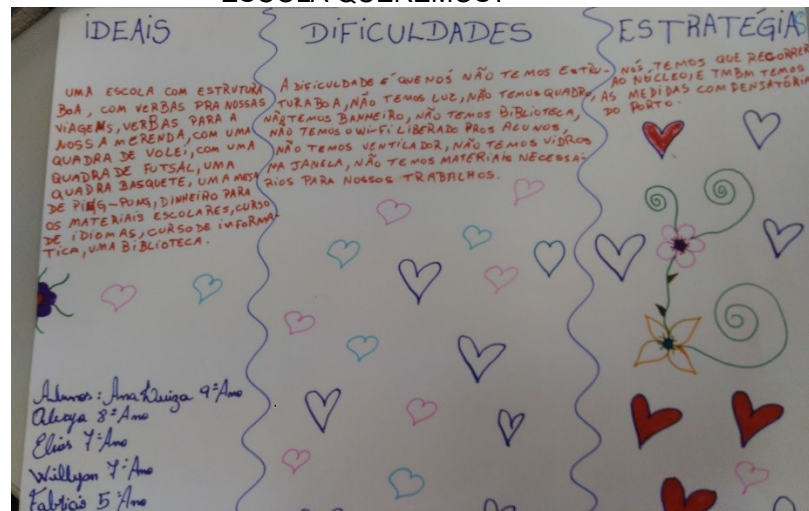 ESCOLA QUEREMOS?
IDEAIS
UMA ESCOLA COM ESTRUTURA
BOA, COM VERBAS PRA NOSSAS
VIAGENS, VERBAS PARA A
NOSSA MERENDA, COM UMA
QUADRA DE VOLEI, COM UMA
QUADRA DE FUTSAL, UMA
QUADRA BASQUETE, UMA MESA
DE PING-PONG, DINHEIRO PARA
OS MATERIAIS ESCOLARES, CURSO
DE IDIOMAS, CURSO DE INFORMA-
TICA, UMA BIBLIOTECA.
Alunos: Ana Luiza 9º Ano
8º Ano
Elias 7º Ano
Willyan 7º Ano
Fabricio 5º Ano
DIFICULDADES
A DIFICULDADE É QUE NÓS NÃO TEMOS ESTRU-
TURA BOA, NÃO TEMOS LUZ, NÃO TEMOS QUADRO,
NÃO TEMOS BANHEIRO, NÃO TEMOS BIBLIOTECA,
NÃO TEMOS O WI-FI LIBERADO PROS ALUNOS,
NÃO TEMOS VENTILADOR, NÃO TEMOS VIDROS
NA JANELA, NÃO TEMOS MATERIAIS NECESSÁ-
RIOS PARA NOSSOS TRABALHOS.
ESTRATÉGIAS
NÓS, TEMOS QUE RECORRER
AO NÚCLEO, E TMBM TEMOS
AS MEDIDAS COMPENSATÓRIA
DO PORTO.